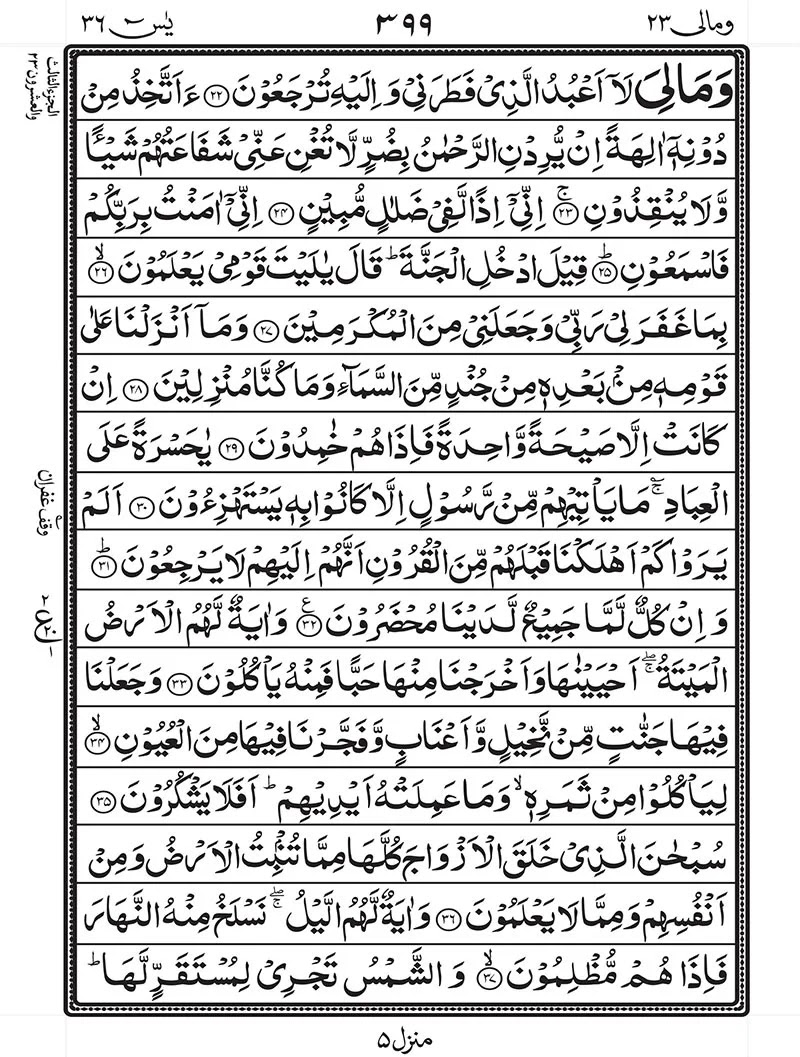 ومالی ۲۳
۳۹۹
یٰسٓ ۳۶
وَمَالِیَ لَاۤ اَعْبُدُ الَّذِیْ فَطَرَنِیْ وَ اِلَیْهِ تُرْجَعُوْنَ ۝۲۲ ءَاَتَّخِذُ مِنْ
دُوْنِهٖۤ اٰلِهَةً اِنْ یُّرِدْنِ الرَّحْمٰنُ بِضُرٍّ لَّا تُغْنِ عَنِّیْ شَفَاعَتُهُمْ شَیْـًٔا
وَّلَا یُنْقِذُوْنِ ۝۲۳ۚ اِنِّیْۤ اِذًا لَّفِیْ ضَلٰلٍ مُّبِیْنٍ ۝۲۴ اِنِّیْۤ اٰمَنْتُ بِرَبِّكُمْ
فَاسْمَعُوْنِ ۝۲۵ؕ قِیْلَ ادْخُلِ الْجَنَّةَ ؕ قَالَ یٰلَیْتَ قَوْمِیْ یَعْلَمُوْنَ ۝۲۶ۙ
بِمَا غَفَرَ لِیْ رَبِّیْ وَجَعَلَنِیْ مِنَ الْمُكْرَمِیْنَ ۝۲۷ وَمَاۤ اَنْزَلْنَا عَلٰی
قَوْمِهٖ مِنْۢ بَعْدِهٖ مِنْ جُنْدٍ مِّنَ السَّمَآءِ وَمَا كُنَّا مُنْزِلِیْنَ ۝۲۸ اِنْ
كَانَتْ اِلَّا صَیْحَةً وَّاحِدَةً فَاِذَا هُمْ خٰمِدُوْنَ ۝۲۹ یٰحَسْرَةً عَلَی
الْعِبَادِ ۚؔ مَا یَاْتِیْهِمْ مِّنْ رَّسُوْلٍ اِلَّا كَانُوْا بِهٖ یَسْتَهْزِءُوْنَ ۝۳۰ اَلَمْ
یَرَوْا كَمْ اَهْلَكْنَا قَبْلَهُمْ مِّنَ الْقُرُوْنِ اَنَّهُمْ اِلَیْهِمْ لَا یَرْجِعُوْنَ ۝۳۱ؕ
وَ اِنْ كُلٌّ لَّمَّا جَمِیْعٌ لَّدَیْنَا مُحْضَرُوْنَ ۝۳۲ع وَاٰیَةٌ لَّهُمُ الْاَرْضُ
الْمَیْتَةُ ۚۖ اَحْیَیْنٰهَا وَاَخْرَجْنَا مِنْهَا حَبًّا فَمِنْهُ یَاْكُلُوْنَ ۝۳۳ وَجَعَلْنَا
فِیْهَا جَنّٰتٍ مِّنْ نَّخِیْلٍ وَّاَعْنَابٍ وَّفَجَّرْنَا فِیْهَا مِنَ الْعُیُوْنِ ۝۳۴ۙ
لِیَاْكُلُوْا مِنْ ثَمَرِهٖ ۙ وَمَا عَمِلَتْهُ اَیْدِیْهِمْ ؕ اَفَلَا یَشْكُرُوْنَ ۝۳۵
سُبْحٰنَ الَّذِیْ خَلَقَ الْاَزْوَاجَ كُلَّهَا مِمَّا تُنْۢبِتُ الْاَرْضُ وَمِنْ
اَنْفُسِهِمْ وَمِمَّا لَا یَعْلَمُوْنَ ۝۳۶ وَاٰیَةٌ لَّهُمُ الَّیْلُ ۚۖ نَسْلَخُ مِنْهُ النَّهَارَ
فَاِذَا هُمْ مُّظْلِمُوْنَ ۝۳۷ۙ وَ الشَّمْسُ تَجْرِیْ لِمُسْتَقَرٍّ لَّهَا ؕ
الجزء الثالث
والعشرون ۲۳
وقف غفران
منزل ۵